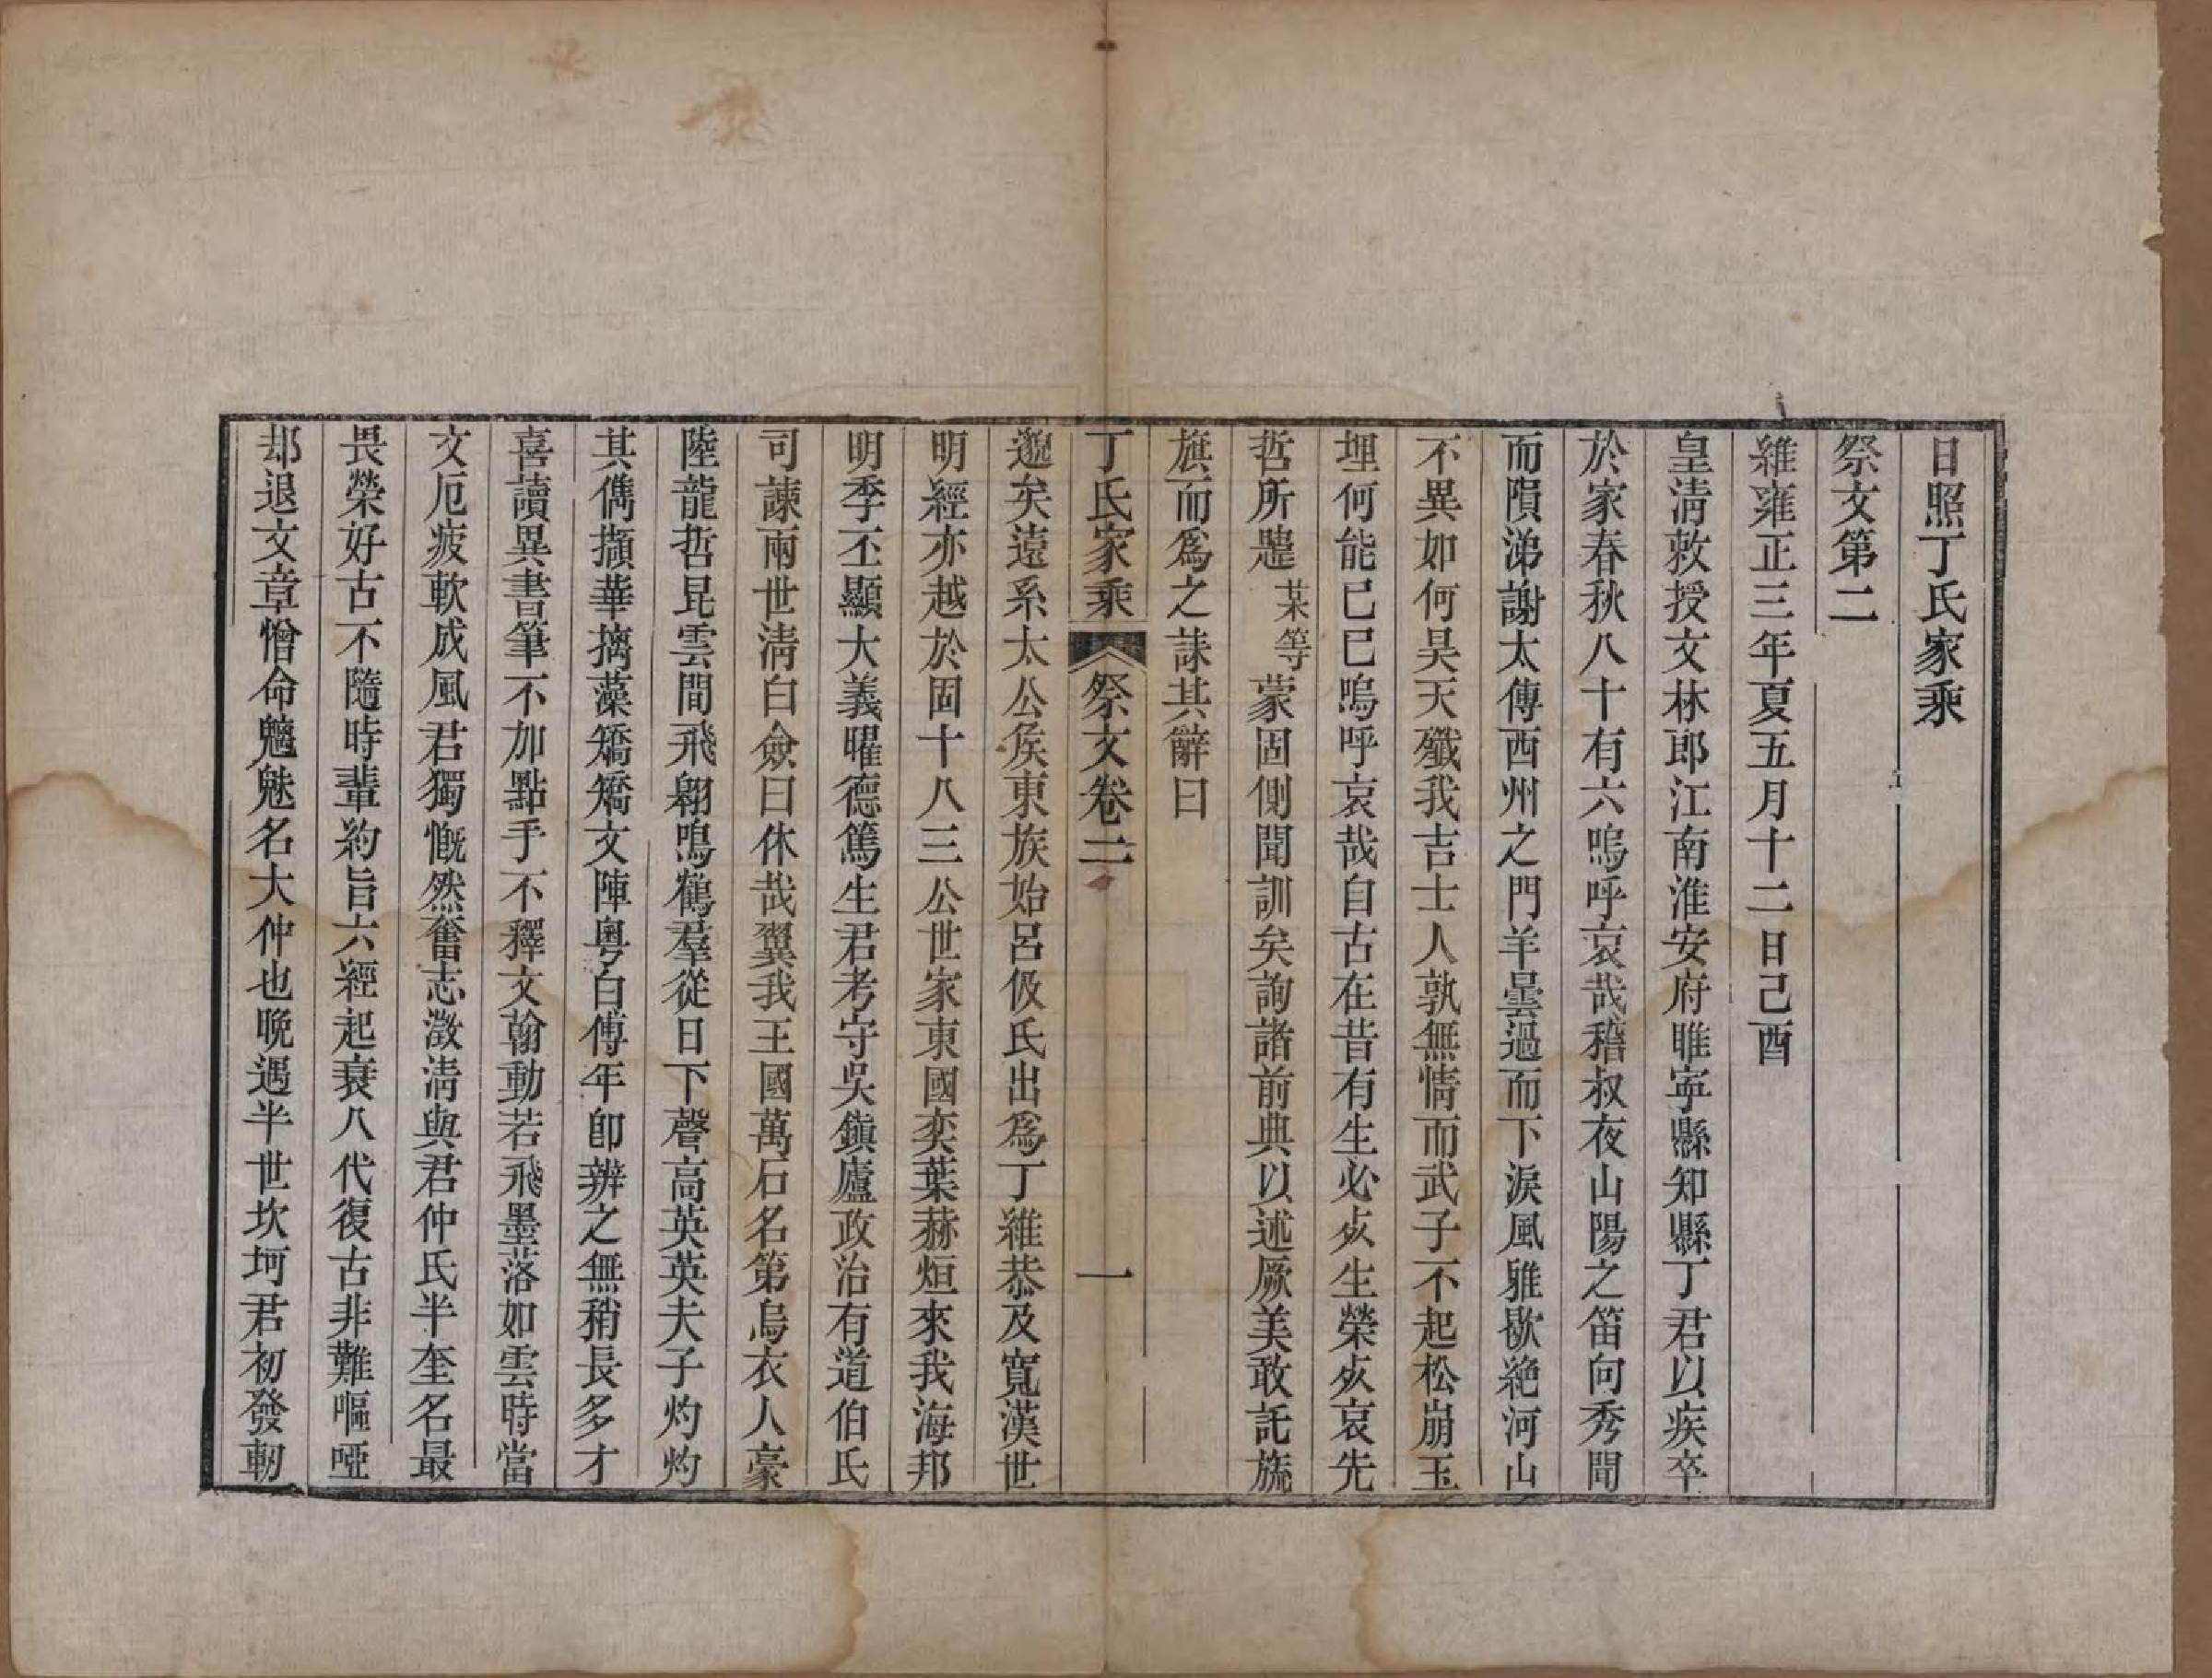 日照丁氏家乘
祭文第二
維雍正三年夏五月十二日己酉
皇清敕授文林郎江南淮安府睢寧縣知縣丁君以疾卒
於家春秋八十有六嗚呼哀哉稽叔夜山陽之笛向秀聞
而隕涕謝太傅西州之門羊曇過而下淚風雅歇絶河山
不異如何昊天殲我吉士人孰無情而武子不起松崩玉
埋何能已已嗚呼哀哉自古在昔有生必死生榮死哀先
哲所韙某等蒙固側聞訓矣詢諸前典以述厥美敢託旐
旗而爲之誄其辭曰
丁氏家乘 祭文卷二 一
邈矣遠系太公侯東族始呂伋氏出爲丁維恭及寬漢世
明經亦越於固十八三公世家東國奕葉赫烜來我海邦
明季丕顯大義曜德篤生君考守吳鎮廬政治有道伯氏
司諫兩世清白僉曰休哉翼我王國萬石名第烏衣人豪
陸龍哲昆雲間飛翺鳴鶴羣從日下聲高英英夫子灼灼
其儁擷華摛藻矯矯文陣粵白傅年卽辨之無稍長多才
喜讀異書筆不加點手不釋文翰動若飛墨落如雲時當
文厄疲軟成風君獨慨然奮志澂清與君仲氏半奎名最
畏榮好古不隨時輩約旨六經起衰八代復古非難嘔啞
却退文章憎命魑魅名大仲也晚遇半世坎坷君初發軔